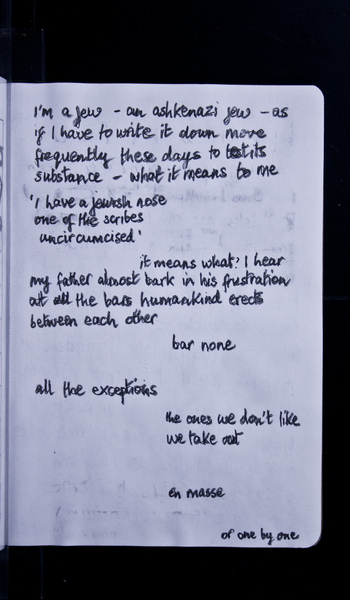 I'm a jew - an ashkenazi jew - as
if I have to write it down more
frequently these days to test its
substance - what it means to me
'I have a jewish nose
one of the scribes
uncircumcised'
it means what? I hear
my father almost bark in his frustration
at all the bars humankind erects
between each other
bar none
all the exceptions
the ones we don't like
we take out
en masse
or one by one